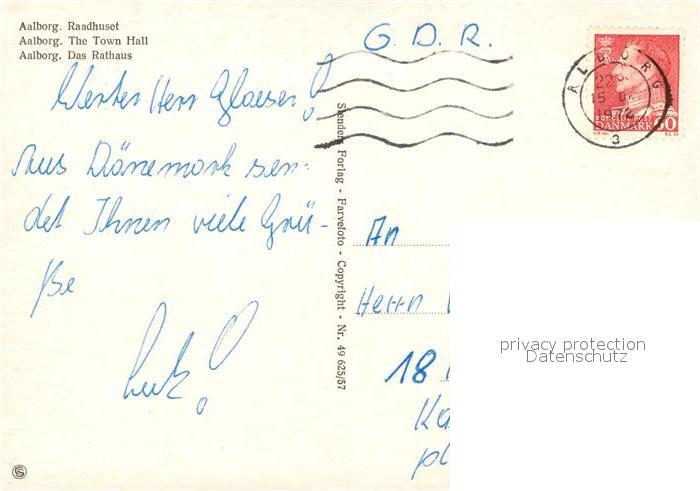 Aalborg. Raadhuset
Aalborg. The Town Hall
Aalborg. Das Rathaus
G. D. R.
Werter Herr Glaeser!
Aus Dänemark sen-
det Ihnen viele Grü-
ße
Stenders Forlag - Farvefoto - Copyright - Nr. 49 625/57
An
Herrn
18
Ka
pl
AALBORG
15
1972
3
DANMARK
privacy protection
Datenschutz